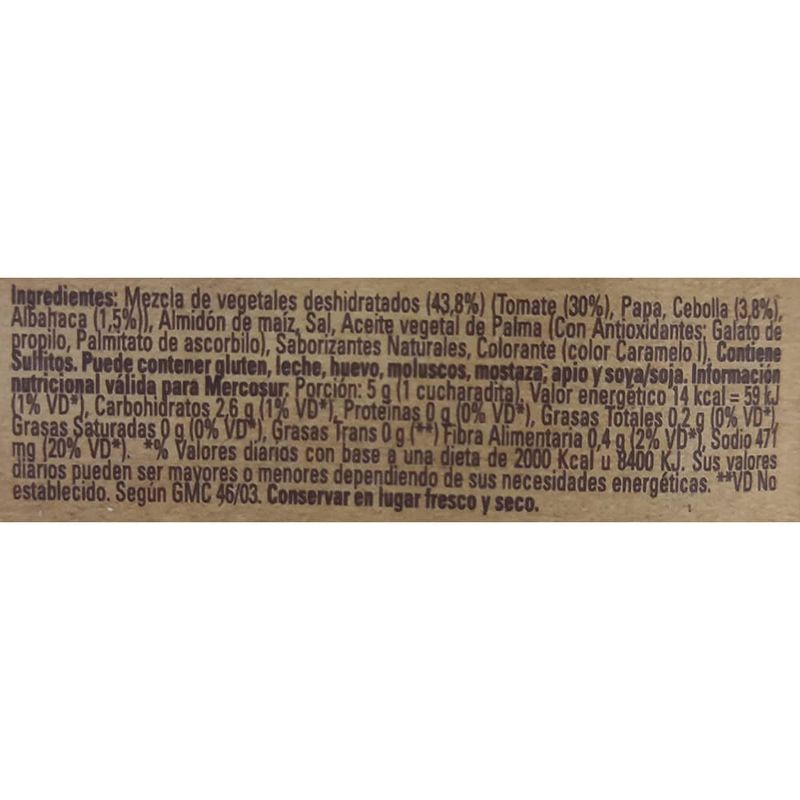 Ingredientes: Mezcla de vegetales deshidratados (43,8%) (Tomate (30%), Papa, Cebolla (3,8%),
Albahaca (1,5%)), Almidón de maíz, Sal, Aceite vegetal de Palma (Con Antioxidantes: Galato de
propilo, Palmitato de ascorbilo), Saborizantes Naturales, Colorante (color Caramelo I). Contiene
Sulfitos. Puede contener gluten, leche, huevo, moluscos, mostaza, apio y soya/soja. Información
nutricional válida para Mercosur: Porción: 5 g (1 cucharadita), Valor energético 14 kcal = 59 kJ
(1% VD*), Carbohidratos 2,6 g (1% VD*), Proteínas 0 g (0% VD*), Grasas Totales 0,2 g (0% VD*),
Grasas Saturadas 0 g (0% VD*), Grasas Trans 0 g (**) Fibra Alimentaria 0,4 g (2% VD*), Sodio 471
mg (20% VD*). *% Valores diarios con base a una dieta de 2000 Kcal u 8400 KJ. Sus valores
diarios pueden ser mayores o menores dependiendo de sus necesidades energéticas. **VD No
establecido. Según GMC 46/03. Conservar en lugar fresco y seco.